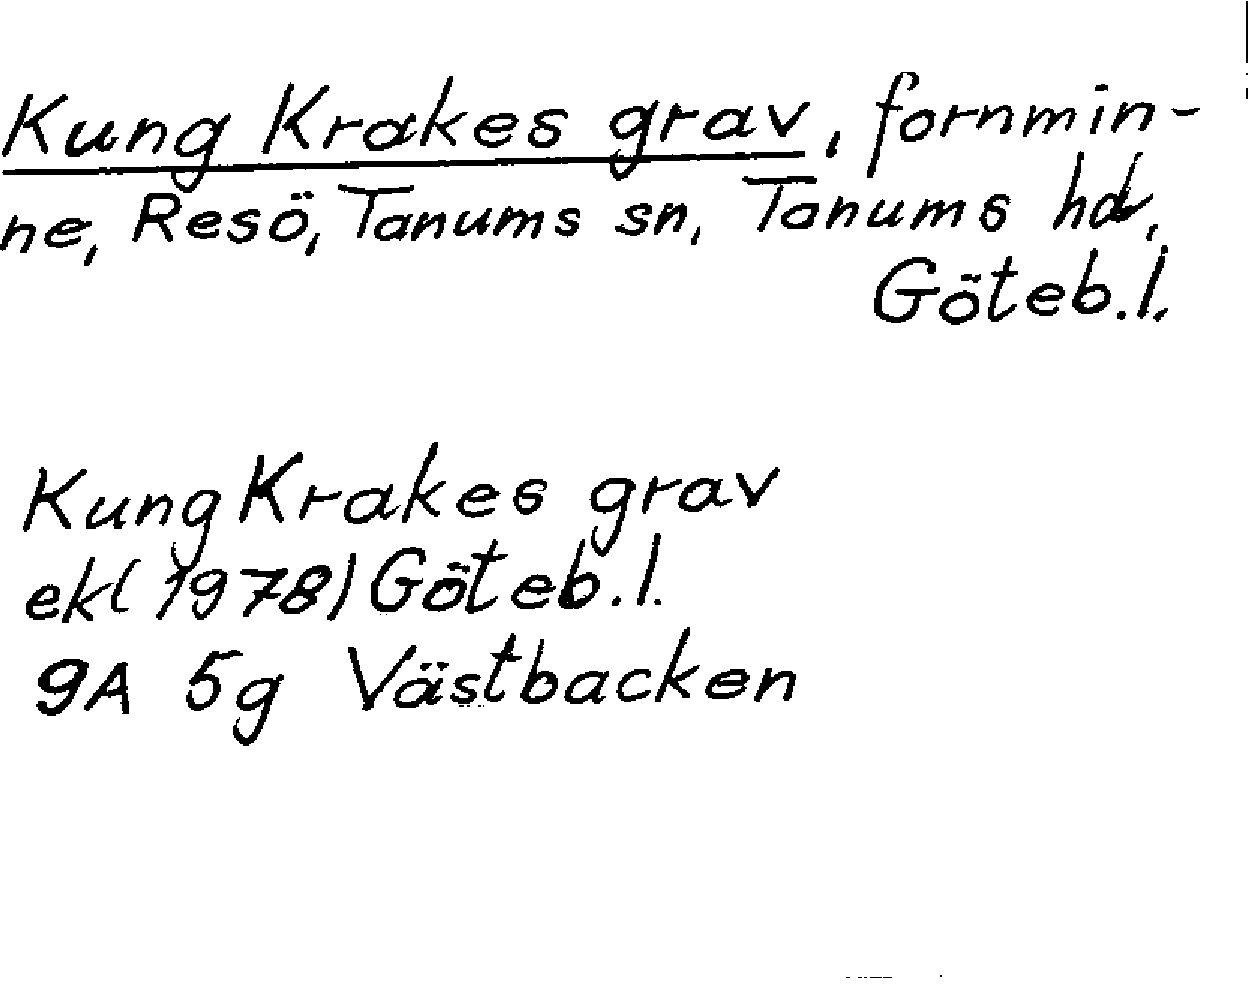 Kung Krakes grav, fornmin-
ne, Resö, Tanums sn, Tanums hd,
Göteb.l.
Kung Krakes grav
ek(1978) Göteb.l.
9A 5g Västbacken